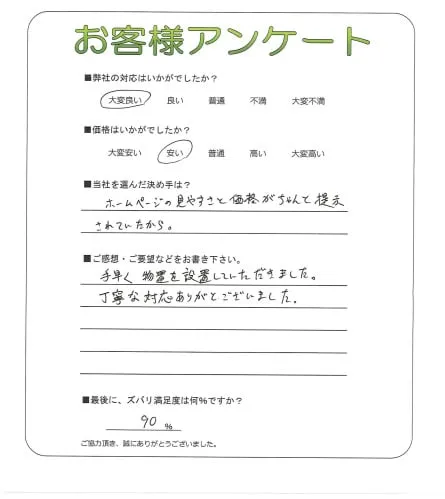 お客様アンケート
■弊社の対応はいかがでしたか？
大変良い 良い 普通 不満 大変不満
■価格はいかがでしたか？
大変安い 安い 普通 高い 大変高い
■当社を選んだ決め手は？
ホームページの見やすさと価格がちゃんと提示
されていたから。
■ご感想・ご要望などをお書き下さい。
手早く物置を設置していただきました。
丁寧な対応ありがとございました。
■最後に、ズバリ満足度は何%ですか？
90 %
ご協力頂き、誠にありがとうございました。